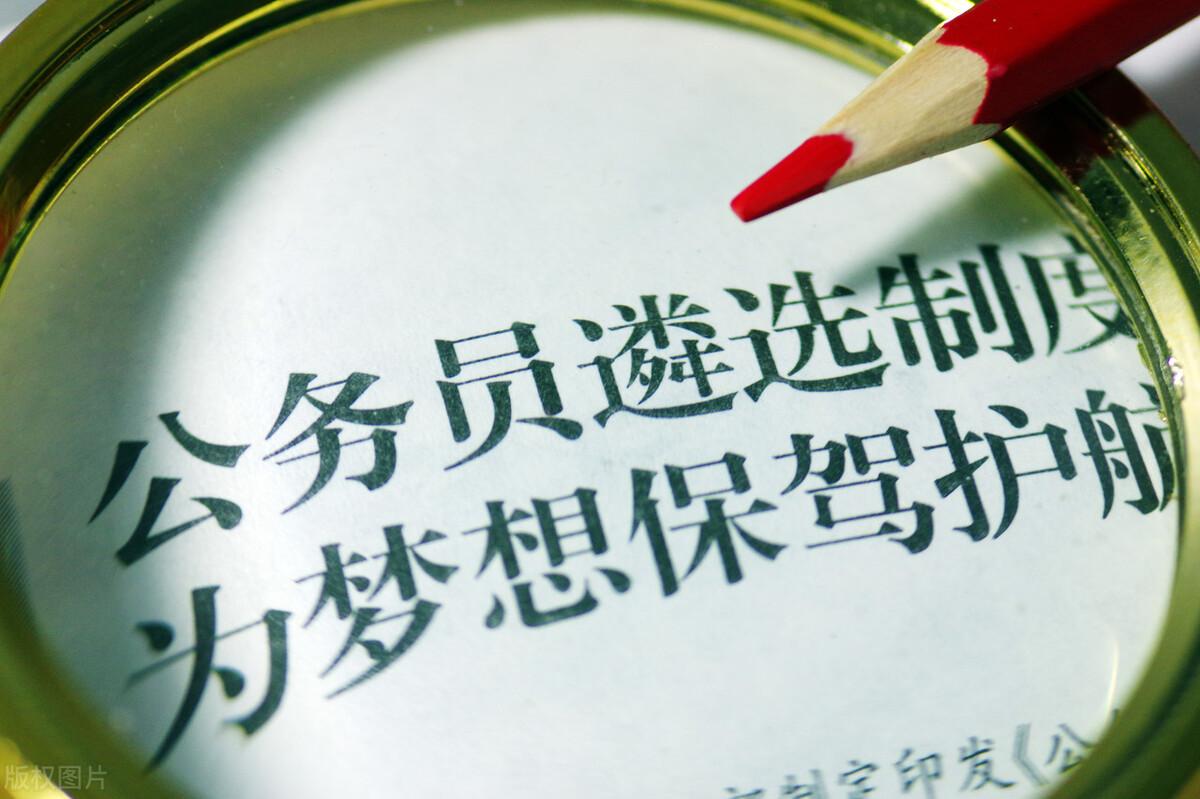 公务员遴选制度
为梦想保驾护航
制定印发《公
版权图片